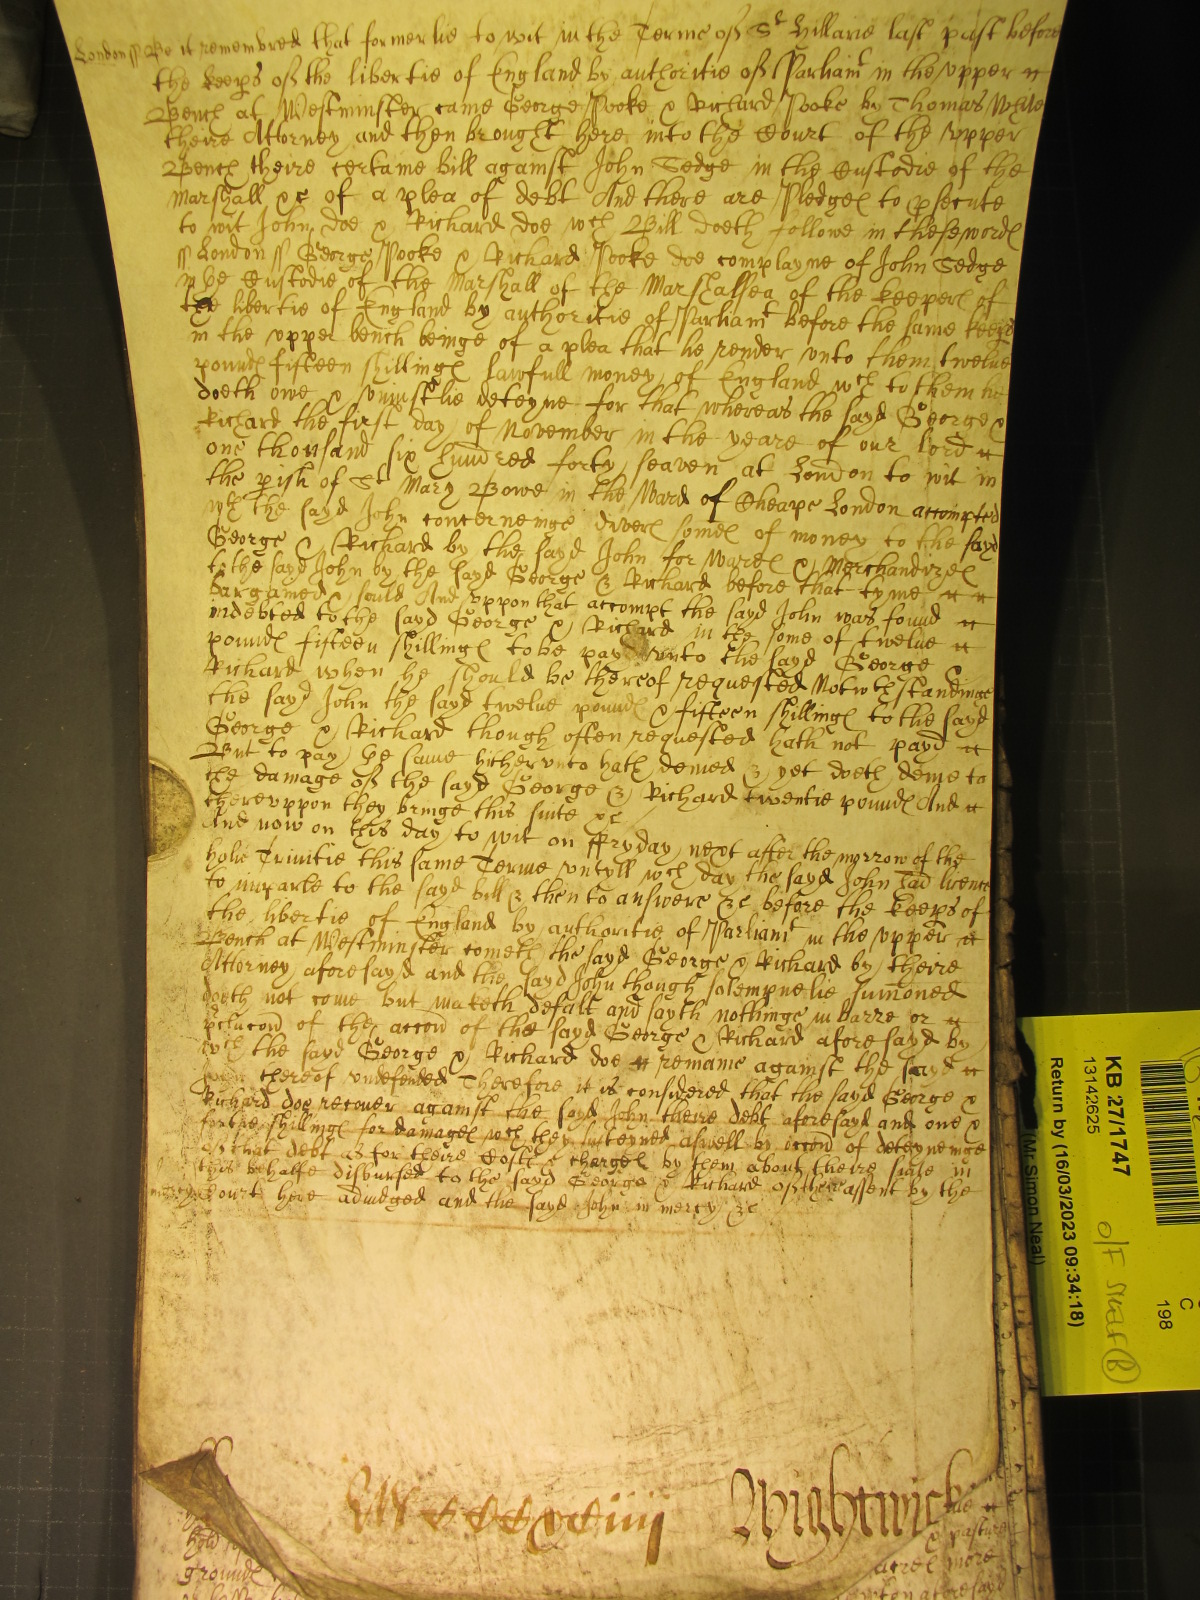 London ss Be it remembred that formerlie to wit in the Terme of St Hillarie last past before
the keeps of the libertie of England by authoritie of Parliamt in the upper
Bench at Westminster came George Pooke & Richard Pooke by Thomas While
theire Attorney and then brought here into the Court of the upper
Bench theire certaine Bill against John Sedge in the Custodie of the
Marshall &c of a plea of debt And there are Pledges to psecute
to wit John doe & Richard doe wch Bill doeth followe in these words
ss London ss George Pooke & Richard Pooke doe complayne of John Sedge
in ye Custodie of the Marshall of the Marshalsea of the keepers of
the libertie of England by authoritie of Parliamt before the same keeps
in the upper bench beinge of a plea that he render unto them twelve
pounds fifteen shillings lawfull money of England wch to them he
doeth owe & uniustlie deteyne for that whereas the sayd George &
Richard the first day of November in the yeare of our Lord
one thousand six hundred forty seaven at London to wit in
the pish of St Mary Bowe in the Ward of Cheape London accompted
wth the sayd John concerneinge divers somes of money to the sayd
George & Richard by the sayd John for Wares & Merchandizes
to the sayd John by the sayd George & Richard before that tyme
bargained & sould And uppon that accompt the sayd John was found
indebted to the sayd George & Richard in the some of twelve
pounds fifteen shillings to be payd unto the sayd George &
Richard when he should be thereof requested Notwthstandinge
the sayd John the sayd twelve pounds & fifteen shillings to the sayd
George & Richard though often requested hath not payd
But to pay ye same hitherunto hath denied & yet doeth denie to
the damage of the sayd George & Richard twentie pounds And
thereuppon they bringe this suite &c
And now on this day to wit on ffryday next after the morrow of the
holie Trinitie this same Terme untyll wch day the sayd John had licence
to imparle to the sayd bill & then to answere &c before the keeps of
the libertie of England by authoritie of Parliamt in the upper
Bench at Westminster cometh the sayd George & Richard by theire
Attorney aforesayd and the sayd John though solempnelie sumoned
doeth not come but maketh defalt and sayth nothinge in barre or
pclucon of the accon of the sayd George & Richard aforesayd by
wch the sayd George & Richard doe remaine against the sayd
John thereof undefended Therefore it is considered that the sayd George &
Richard doe recover against the sayd John theire debt aforesayd and one &
fortie shillings for damages wch they susteyned aswell by occon of deteyneinge
of that debt as for theire Costs & charges by them about theire suite in
this behalfe disbursed to the sayd George & Richard of their assent by the
Court here adiudged and the sayd John in mercy &c
Wightwick
KB 27/1747
13142625
Return by (16/03/2023 09:34:18)
(Mr. Simon Neal)
C
198